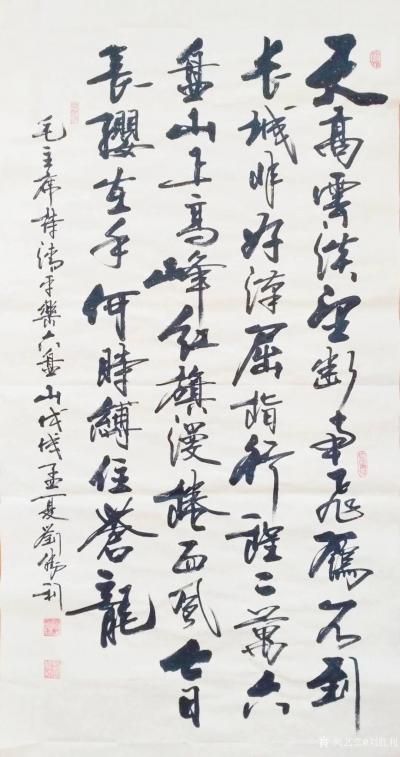 天高雲淡望斷南飛雁不到
长城非好漢屈指行程二萬六
盘山上高峰红旗漫捲西風今日
長纓在手何時縛住蒼龍
毛主席詩清平樂六盘山戊戌孟夏劉勝利
@刘胜利